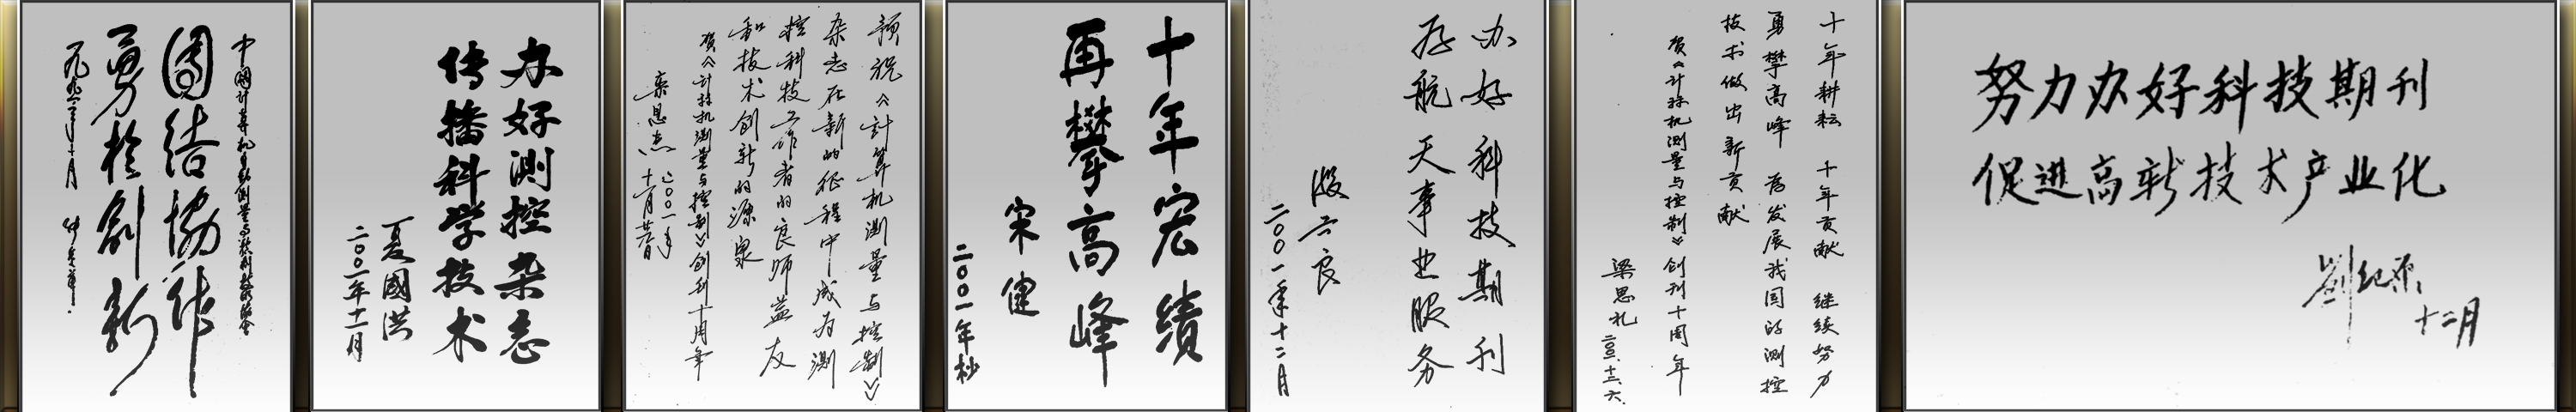 中國計算机自動測量与控制技術協會
團结協作
勇於創新
一九九二年十月
办好測控杂志
传播科学技术
夏國洪
二〇〇一年十一月
预祝《計算机測量与控制》
杂志在新的征程中成为測
控科技工作者的良师益友
和技术创新的源泉
贺《计算机測量与控制》创刊十周年
栾恩杰
二〇〇一年
十月廿四日
十年宏績
再攀高峰
宋健
二〇〇一年杪
办好科技期刊
为航天事业服务
殷云良
二〇〇一年十二月
十年耕耘 十年贡献 继续努力
勇攀高峰 为发展我国的測控
技术做出新贡献
贺《计算机測量与控制》创刊十周年
梁思礼
努力办好科技期刊
促进高新技术产业化
劉纪原
十二月